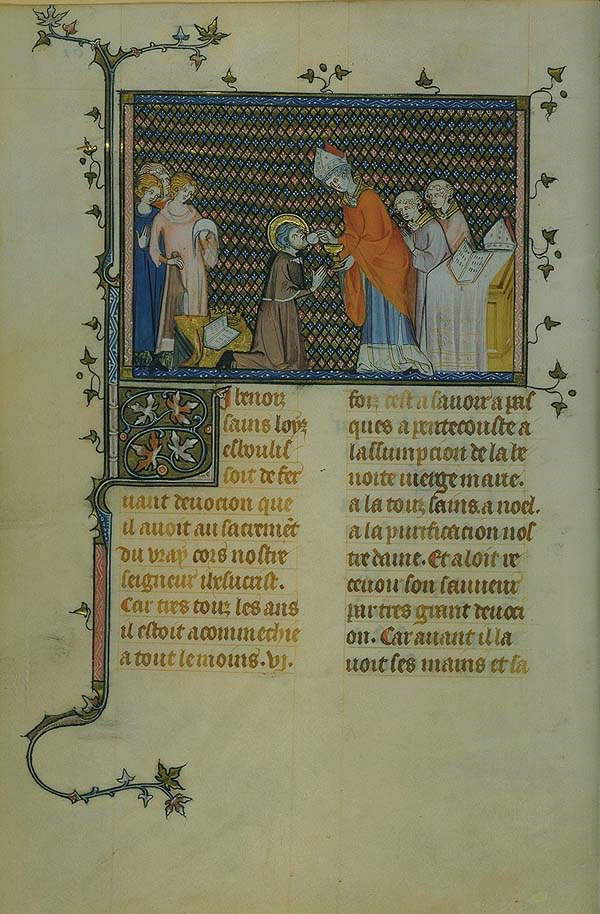 i benoiz
sains loyz
esbouliſ
soit de fer
uant deuocion que
il auoit au sacremēt
du uray cors nostre
seigneur ihesucrist.
Car tres touz les ans
il estoit acommechie
a tout le moins .vi.
foiz cest a sauoir a pas
ques a penteconste a
lassumpcion de la be
noite uierge marie.
a la touz sains. a noel.
a la purificacion nos
tre dame. Et aloit re
ceuoir son sauueur
par tres grant deuoci
on. Car auant il la
uoit ses mains et sa